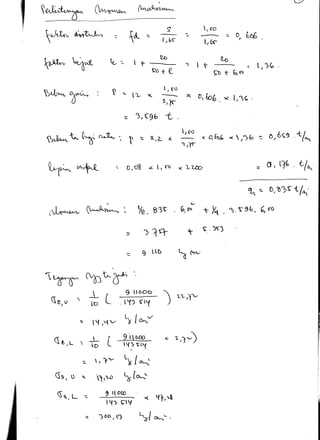 Perhitungan Momen Maksimum
faktor distribusi = fd = S / 1,65 = 1,00 / 1,65 = 0,606
faktor kejut k = 1 + 20 / 50 + l = 1 + 20 / 50 + 6,00 = 1,36
Beban garis : P = 12 x 1,00 / 2,75 x 0,606 x 1,36
= 3,596 t
p = 2,2 x 1,00 / 2,75 x 0,606 x 1,36 = 0,659 t/m
= 0,08 x 1,00 x 2200 = 0,176 t/m
q = 0,835 t/m
Momen Maksimum : 1/8 . 835 . 6,00² + 1/4 . 3.596. 6,00
= 3757 + 5.353
= 9 110 kg m
Tegangan yg terjadi :
σb,u = 1 / 10 ( 911000 / 143 514 ) 22,72
=
σb,L = 1 / 10 ( 911000 / 143514 x 2,72 )
=
σs,u = kg/cm²
σs,L = 911000 / 143 514 x 47,28
= 300,13 kg/cm².